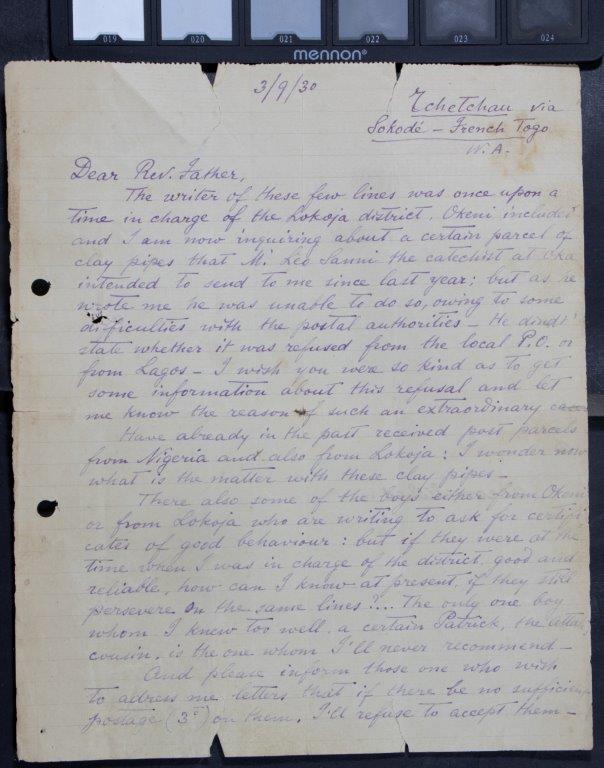 019 020 021 022 023 024
mennon®
3/9/30
Tchetchau via
Sokodé – French Togo
W.A.
Dear Rev. Father,
The writer of these few lines was once upon a
time in charge of the Lokoja district, Okeni included
and I am now inquiring about a certain parcel of
clay pipes that Mr Léo Sanni the catechist at Oka
intended to send to me since last year; but as he
wrote me he was unable to do so, owing to some
difficulties with the postal authorities – He dind't
state whether it was refused from the local P.O. or
from Lagos – I wish you were so kind as to get
some information about this refusal and let
me know the reason of such an extraordinary
Have already in the past received post parcels
from Nigeria and also from Lokoja; I wonder now
what is the matter with these clay pipes –
There also some of the boys either from Okeni
or from Lokoja who are writing to ask for certifi
cates of good behaviour: but if they were at the
time when I was in charge of the district, good and
reliable, how can I know at present, if they still
persevere on the same lines?.... The only one boy
whom I knew too well, a certain Patrick, the
cousin, is the one whom I'll never recommend –
And please inform those one who wish
to adress me letters that if there be no sufficient
postage (3d) on them, I'll refuse to accept them –